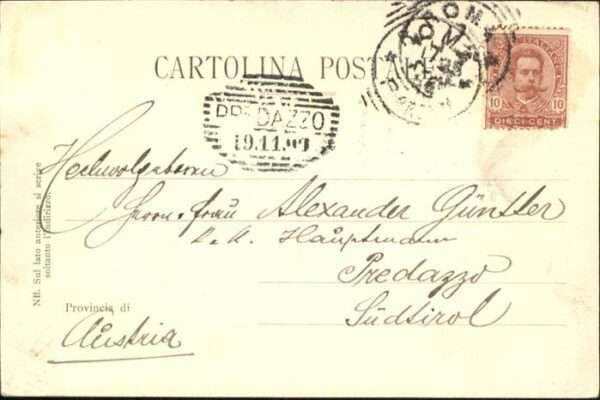 CARTOLINA POSTA
ROMA
POSTE ITALIANE
10 10
DIECI CENT.
PREDAZZO
19.11.
Hochwolgeboren
Herrn u. Frau Alexander Günther
k. k. Hauptmann
Predazzo
Südtirol
Provincia di
Austria
NB. Sul lato anteriore si scrive
soltanto l'indirizzo.